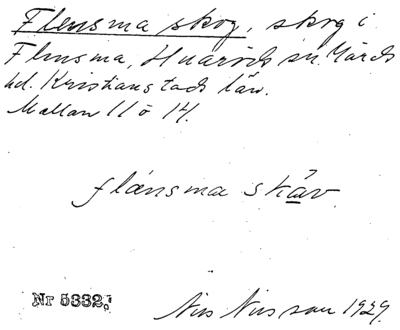 Flensma skog, skog i
Flensma, Hvaröds sn. Gärds
hd. Kristianstads län.
Mellan 11 o 14.
flænsma skåv
Nr 5332.
Nils Nilsson 1929.